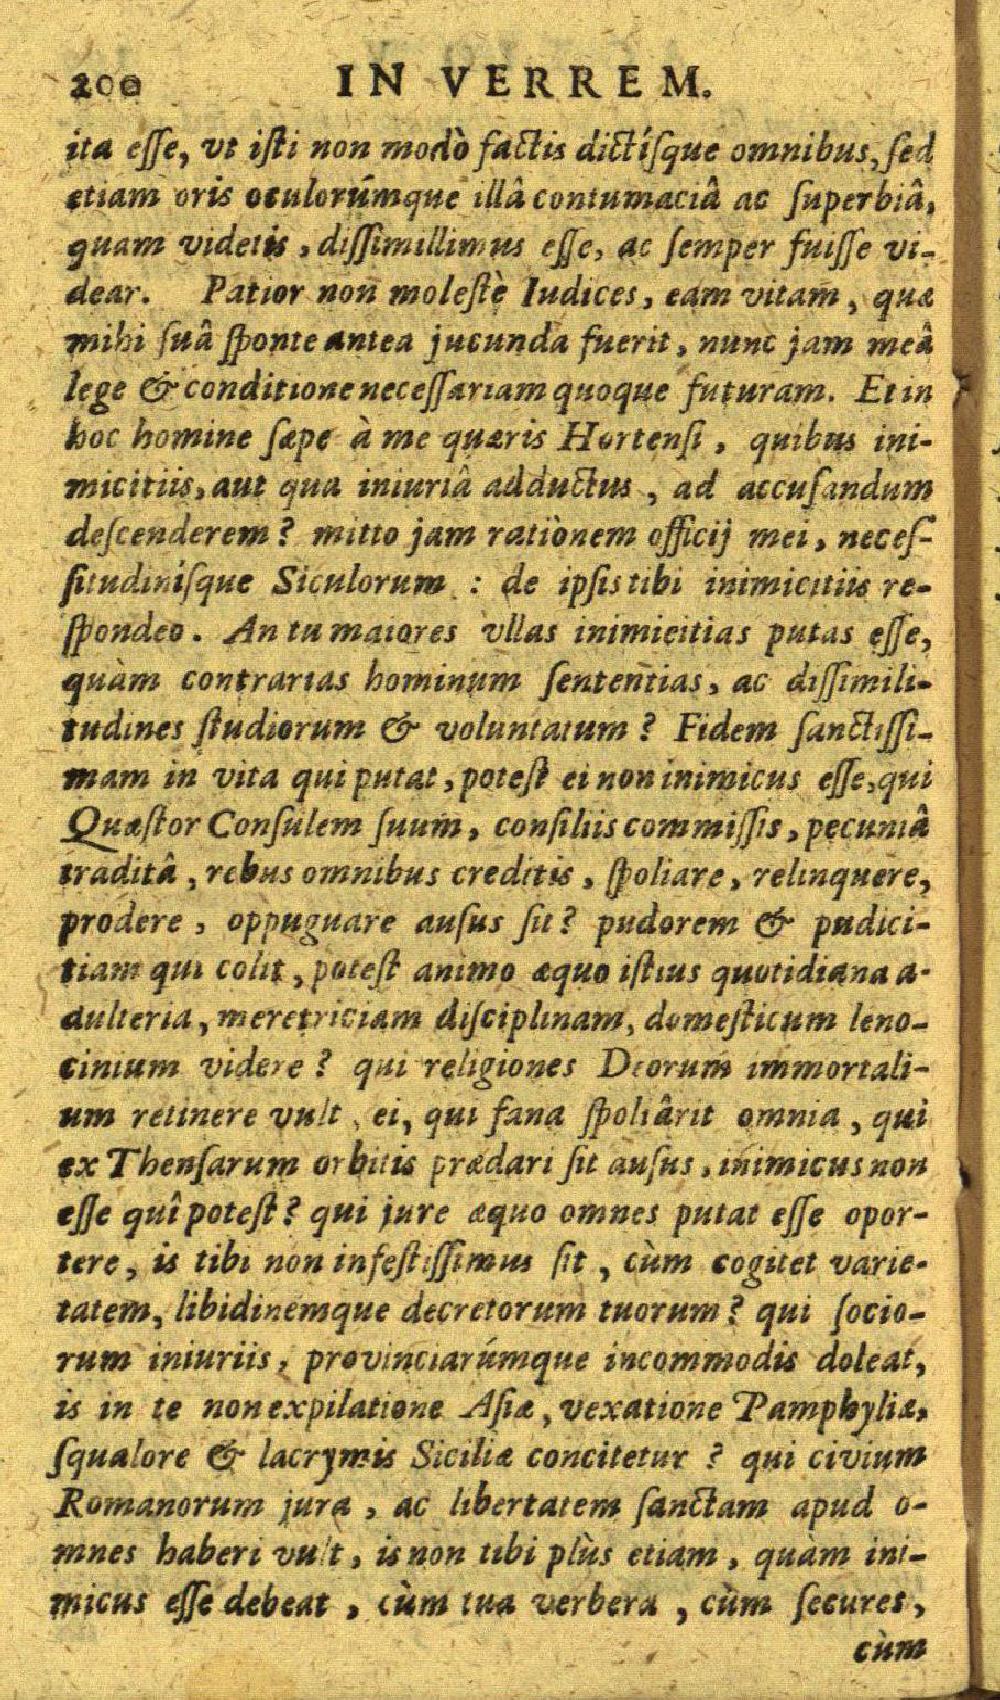 200 IN VERREM.
ita eſſe, vt iſti non modò factis dictíſque omnibus, ſed
etiam oris oculorúmque illâ contumaciâ ac ſuperbiâ,
quam videtis, diſſimillimus eſſe, ac ſemper fuiſſe vi-
dear. Patior non moleſtè Iudices, eam vitam, quæ
mihi ſuâ ſponte antea jucunda fuerit, nunc jam meâ
lege & conditione neceſſariam quoque futuram. Et in
hoc homine ſæpe à me quæris Hortenſi, quibus ini-
micitiis, aut qua iniuriâ adductus, ad accuſandum
deſcenderem? mitto jam rationem officij mei, neceſ-
ſitudiniſque Siculorum : de ipſis tibi inimicitiis re-
ſpondeo. An tu maiores vllas inimicitias putas eſſe,
quàm contrarias hominum ſententias, ac diſſimili-
tudines ſtudiorum & voluntatum? Fidem ſanctiſſi-
mam in vita qui putat, poteſt ei non inimicus eſſe, qui
Quæſtor Conſulem ſuum, conſiliis commiſſis, pecuniâ
traditâ, rebus omnibus creditis, ſpoliare, relinquere,
prodere, oppuguare auſus ſit? pudorem & pudici-
tiam qui colit, poteſt animo æquo iſtius quotidiana a-
dulteria, meretriciam diſciplinam, domeſticum leno-
cinium videre? qui religiones Deorum immortali-
um retinere vult, ei, qui fana ſpoliârit omnia, qui
ex Thenſarum orbitis prædari ſit auſus, inimicus non
eſſe quî poteſt? qui jure æquo omnes putat eſſe opor-
tere, is tibi non infeſtiſſimus ſit, cùm cogitet varie-
tatem, libidinemque decretorum tuorum? qui ſocio-
rum iniuriis, provinciarúmque incommodis doleat,
is in te non expilatione Aſiæ, vexatione Pamphyliæ,
ſqualore & lacrymis Siciliæ concitetur? qui civium
Romanorum jura, ac libertatem ſanctam apud o-
mnes haberi vult, is non tibi plùs etiam, quàm ini-
micus eſſe debeat, cùm tua verbera, cùm ſecures,
cùm